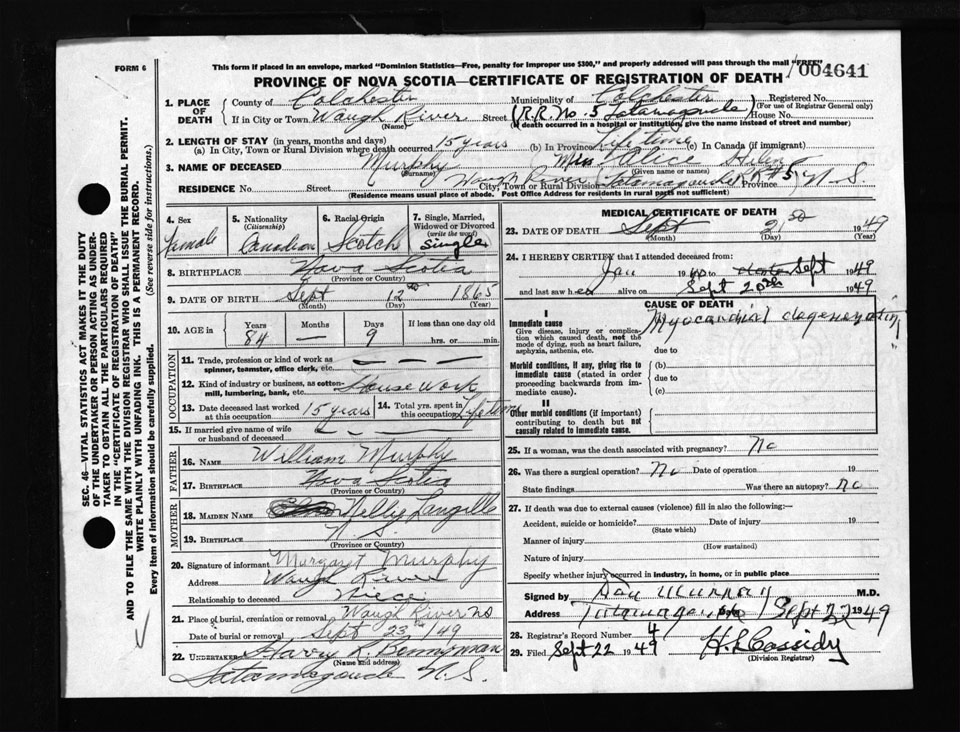 FORM 6
This form if placed in an envelope, marked "Dominion Statistics—Free, penalty for improper use $300," and properly addressed will pass through the mail "FREE"
PROVINCE OF NOVA SCOTIA—CERTIFICATE OF REGISTRATION OF DEATH
004641
1. PLACE OF DEATH County of Colchester Municipality of Colchester Registered No.
(For use of Registrar General only)
If in City or Town Waugh River Street (R.R. No 5 Tatamagouche) House No.
(Name) (If death occurred in a hospital or institution, give the name instead of street and number)
2. LENGTH OF STAY (in years, months and days)
(a) In City, Town or Rural Division where death occurred 15 years (b) In Province Lifetime (c) In Canada (if immigrant)
3. NAME OF DECEASED Murphy Miss Alice Helen
(Surname) (Given name or names)
RESIDENCE No. Street City, Town or Rural Division Waugh River (Tatamagouche R.R #5) Province N-S
(Residence means usual place of abode. Post Office Address for Residents in rural parts not sufficient)
SEC. 46—VITAL STATISTICS ACT MAKES IT THE DUTY
OF THE UNDERTAKER OR PERSON ACTING AS UNDERTAKER TO OBTAIN ALL THE PARTICULARS REQUIRED
IN THE "CERTIFICATE OF REGISTRATION OF DEATH"
AND TO FILE THE SAME WITH THE DIVISION REGISTRAR WHO SHALL ISSUE THE BURIAL PERMIT.
WRITE PLAINLY WITH UNFADING INK. THIS IS A PERMANENT RECORD.
Every item of information should be carefully supplied. (See reverse side for instructions.)
4. Sex Female
5. Nationality (Citizenship) Canadian
6. Racial Origin Scotch
7. Single, Married, Widowed or Divorced (write the word) Single
8. BIRTHPLACE Nova Scotia
(Province or Country)
9. DATE OF BIRTH Sept 12th 1865
(Month) (Day) (Year)
10. AGE in Years 84 Months — Days 9 If less than one day old hrs. or min.
OCCUPATION
11. Trade, profession or kind of work as spinner, teamster, office clerk, etc. — — —
12. Kind of industry or business, as cotton-mill, lumbering, bank, etc. House Work
13. Date deceased last worked at this occupation 15 years
14. Total yrs. spent in this occupation Lifetime
15. If married give name of wife or husband of deceased — — —
FATHER
16. NAME William Murphy
17. BIRTHPLACE Nova Scotia
(Province or Country)
MOTHER
18. MAIDEN NAME Nellie Langille
19. BIRTHPLACE N.S.
(Province or Country)
20. Signature of informant Margaret Murphy
Address Waugh River
Relationship to deceased Niece
21. Place of burial, cremation or removal Waugh River NS
Date of burial or removal Sept 23rd/49
22. UNDERTAKER Harry K. Bonnyman
(Name and address)
Tatamagouche N.S.
MEDICAL CERTIFICATE OF DEATH
23. DATE OF DEATH Sept 21 1949
(Month) (Day) (Year)
24. I HEREBY CERTIFY that I attended deceased from:
Jan 19 to Sept 1949
and last saw her alive on Sept 20th 1949
CAUSE OF DEATH
I
Immediate cause Myocardial degeneration
Give disease, injury or complication which caused death, not the mode of dying, such as heart failure, asphyxia, asthenia, etc.
due to
Morbid conditions, if any, giving rise to immediate cause (stated in order proceeding backwards from immediate cause).
(b)
due to
(c)
II
Other morbid conditions (if important) contributing to death but not causally related to immediate cause.
25. If a woman, was the death associated with pregnancy? No
26. Was there a surgical operation? No Date of operation 19
State findings Was there an autopsy? No
27. If death was due to external causes (violence) fill in also the following:—
Accident, suicide or homicide? Date of injury 19
(State which)
Manner of injury
(How sustained)
Nature of injury
Specify whether injury occurred in industry, in home, or in public place
Signed by Dan Murray M.D.
Address Tatamagouche Sept 22 1949
28. Registrar's Record Number 4
29. Filed Sept 22 1949 H L Cassidy
(Division Registrar)